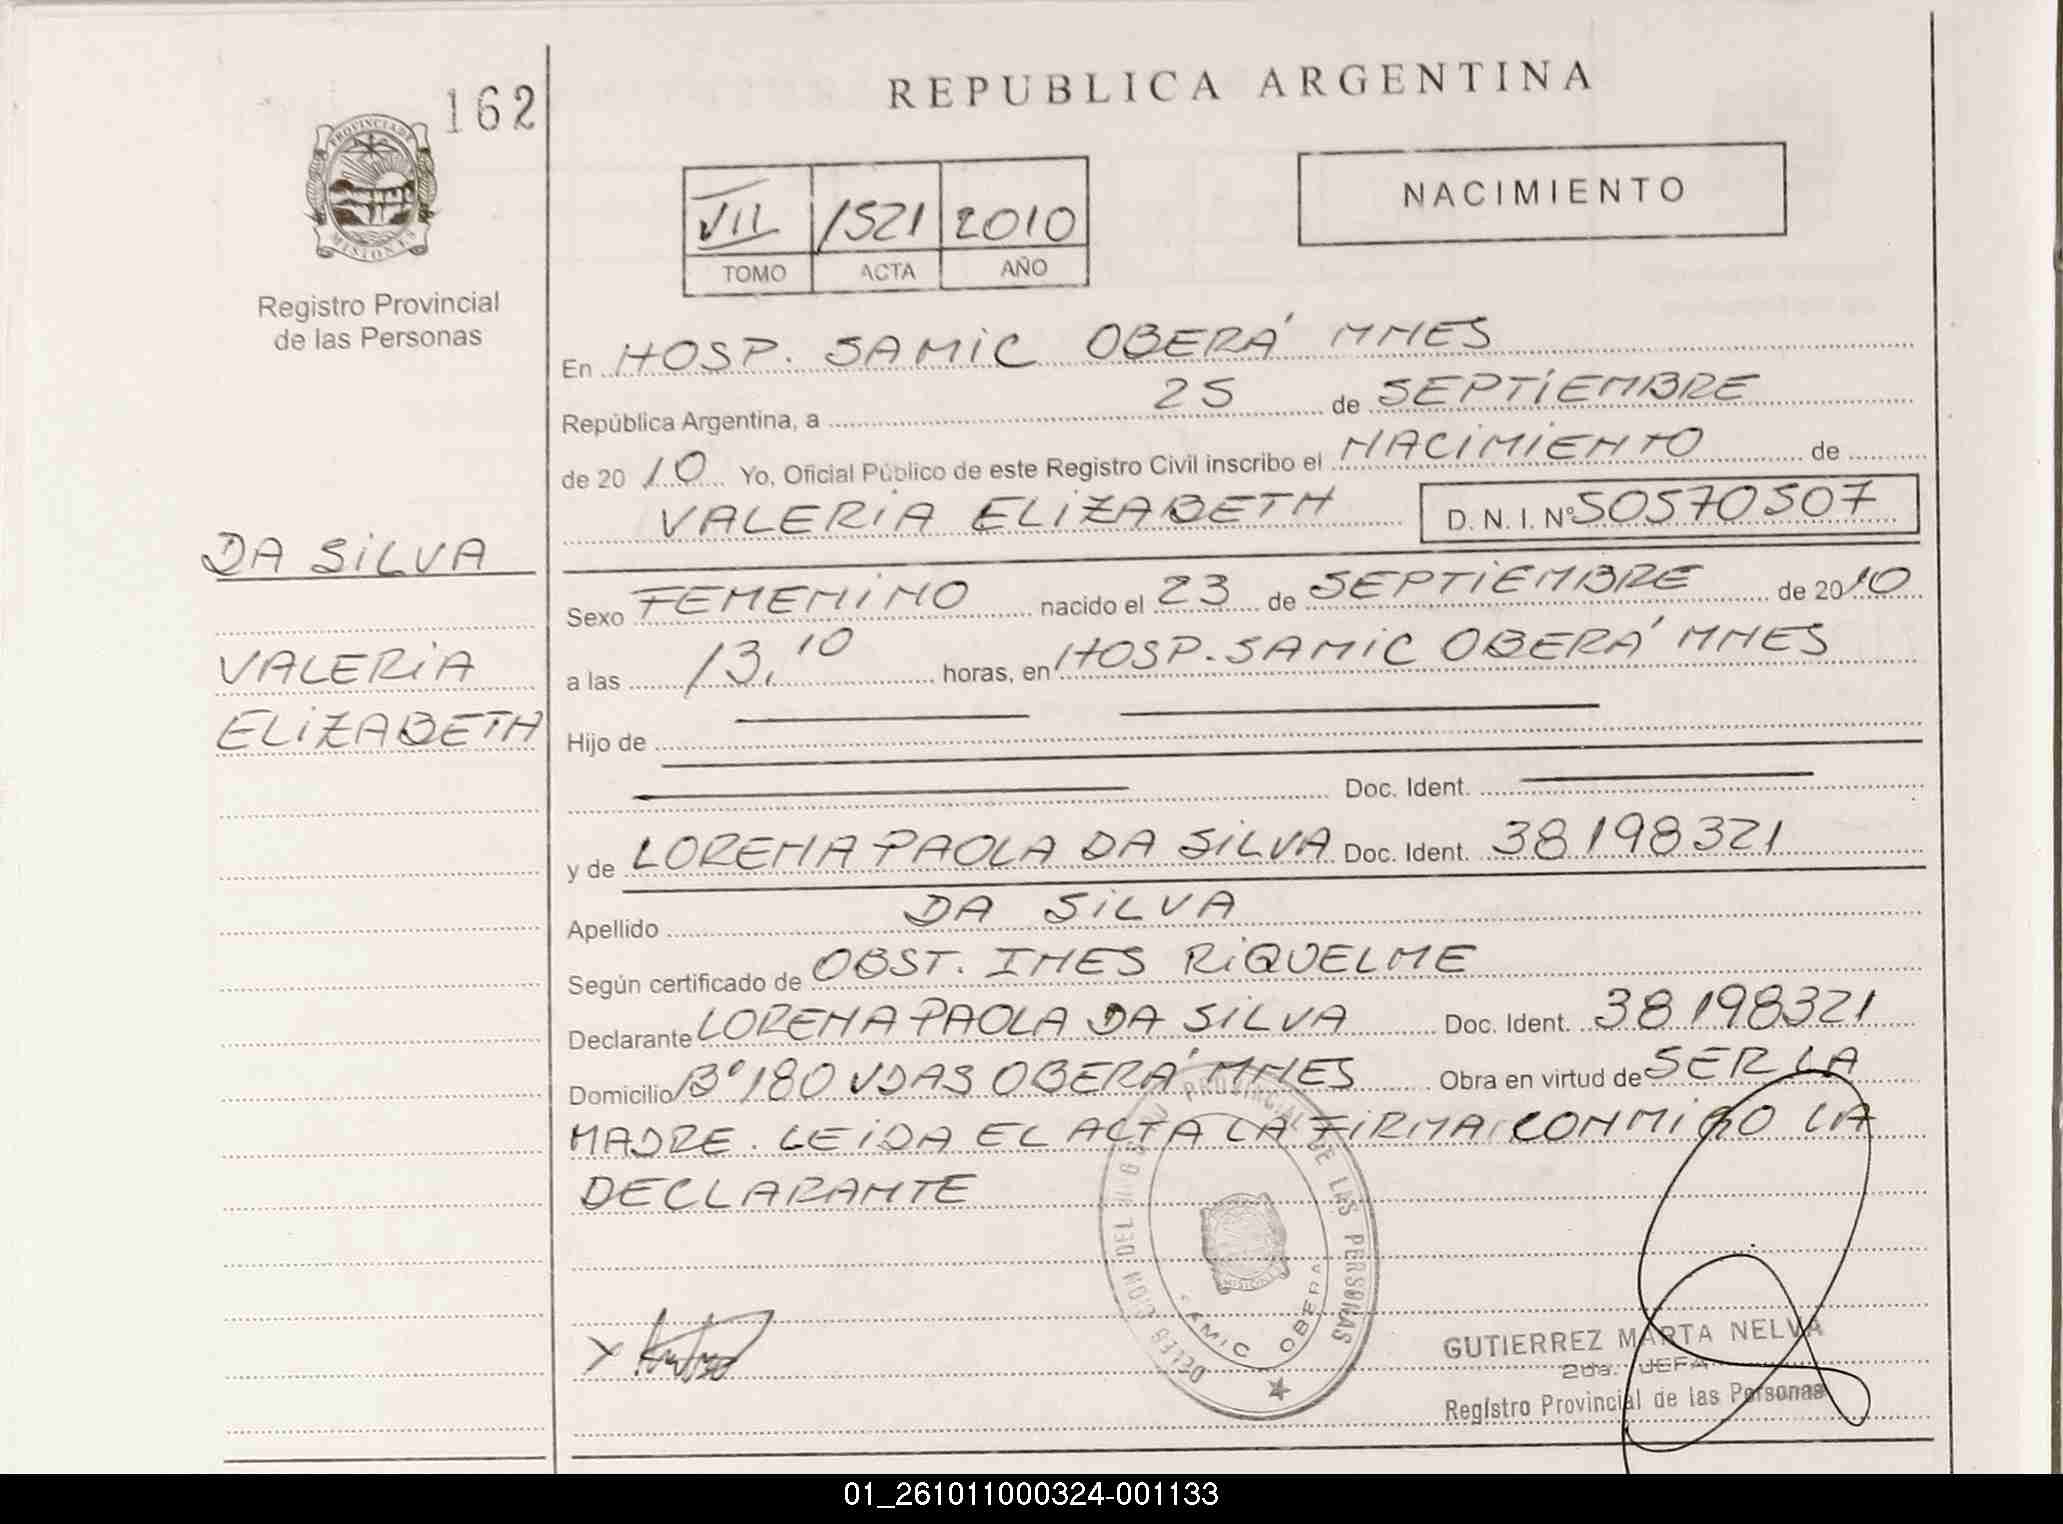 162
PROVINCIA DE
MISIONES
Registro Provincial
de las Personas
DA SILVA
VALERIA
ELIZABETH
REPUBLICA ARGENTINA
VII 1521 2010
TOMO ACTA AÑO
NACIMIENTO
En HOSP. SAMIC OBERÁ MNES
República Argentina, a 25 de SEPTIEMBRE
de 2010 Yo, Oficial Público de este Registro Civil inscribo el NACIMIENTO de
VALERIA ELIZABETH D. N. I. Nº 50570507
Sexo FEMENINO nacido el 23 de SEPTIEMBRE de 2010
a las 13,10 horas, en HOSP. SAMIC OBERÁ MNES
Hijo de
Doc. Ident.
y de LORENA PAOLA DA SILVA Doc. Ident. 38198321
Apellido DA SILVA
Según certificado de OBST. INES RIQUELME
Declarante LORENA PAOLA DA SILVA Doc. Ident. 38198321
Domicilio Bº 180 VDAS OBERÁ MNES Obra en virtud de SER LA
MADRE. LEIDA EL ACTA LA FIRMA CONMIGO LA
DECLARANTE
PROVINCIAL DE LAS PERSONAS
OBERA
GUTIERREZ MARTA NELVA
2da. JEFA
Registro Provincial de las Personas
01_261011000324-001133